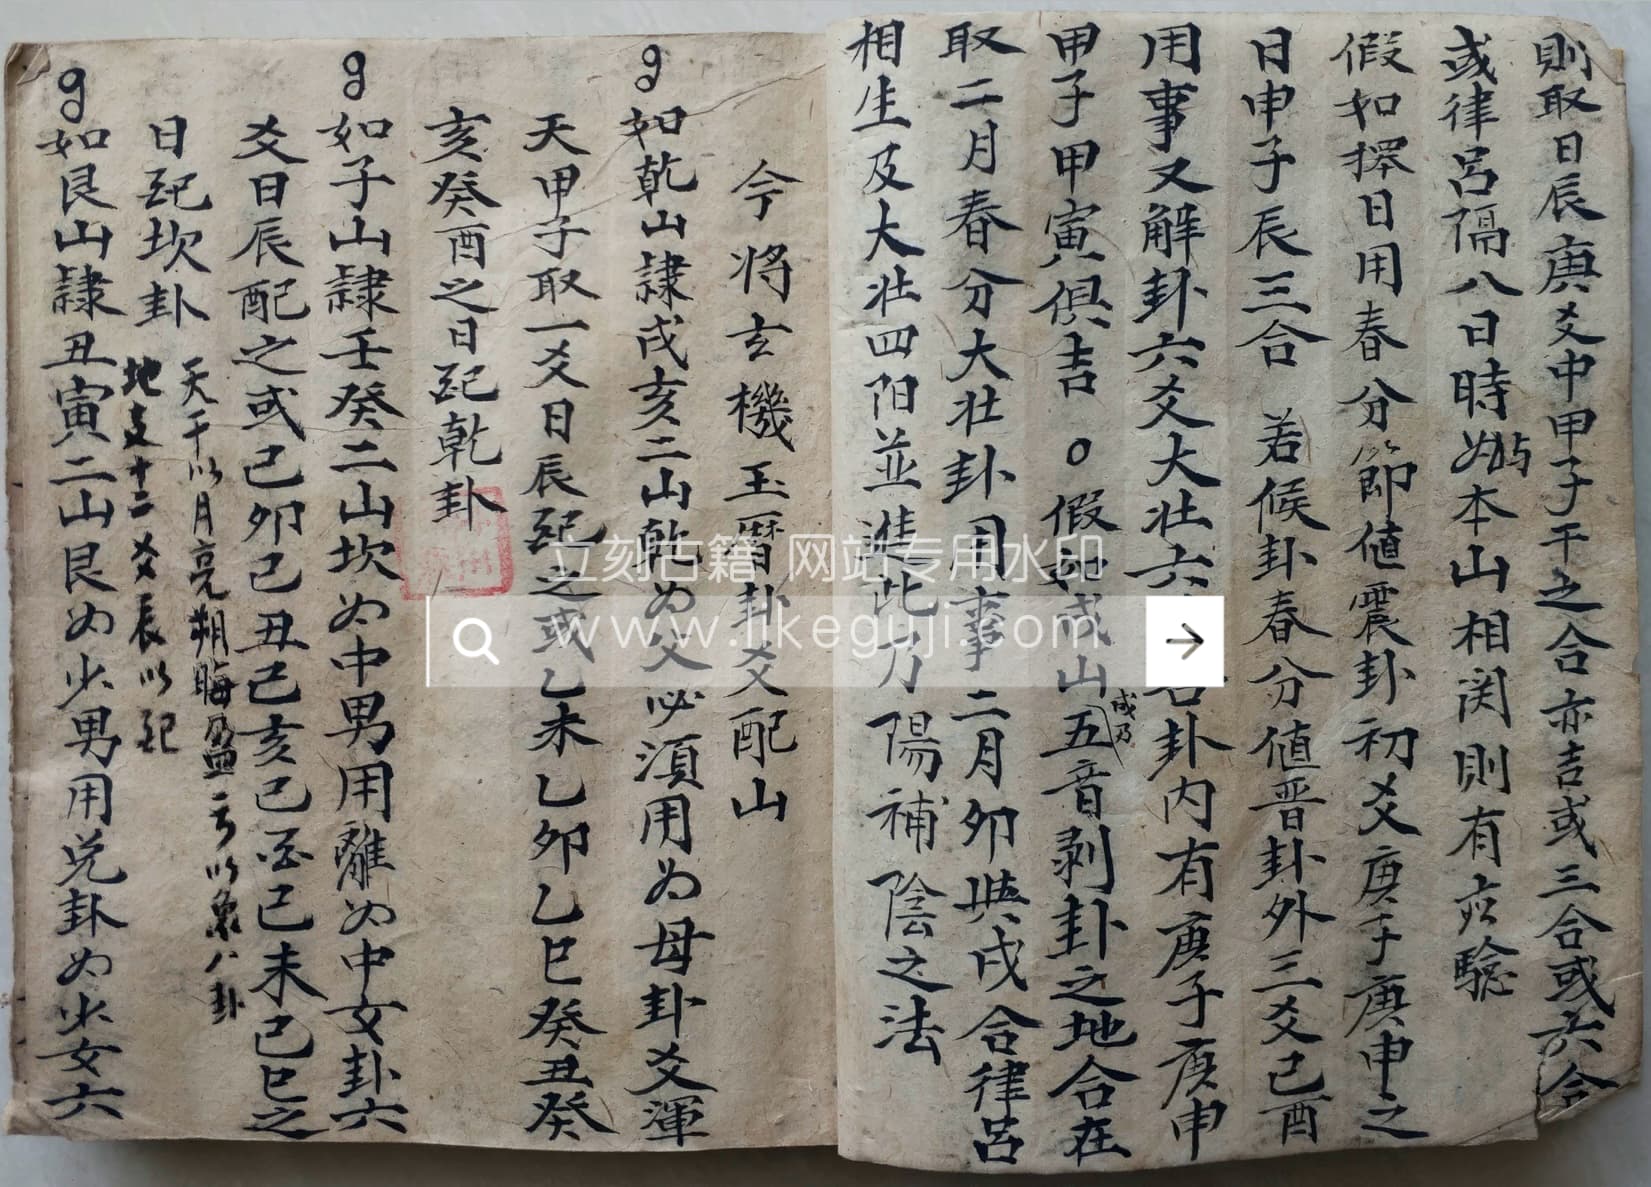 則取日辰庚爻中甲子干之合亦吉或三合或六合
或律呂隔八日時如與本山相関則有応驗
假如擇日用春分節値震卦初爻庚子庚申之
日申子辰三合 若候卦春分値晋卦外三爻己酉
用事又解卦六爻大壮六 卦内有庚子庚申
甲子甲寅俱吉 ○假如戌山五音剥卦之地合在
戌乃
取二月春分大壮卦用事二月卯與戌合律呂
相生及大壮四阳並進此乃陽補陰之法
今将玄機玉曆卦爻配山
如乾山隷戌亥二山乾为父必須用为母卦爻渾
天甲子取一爻日辰配之或乙未乙卯乙巳癸丑癸
亥癸酉之日配乾卦
如子山隷壬癸二山坎为中男用離为中女卦六
爻日辰配之或己卯己丑己亥己酉己未己巳之
日配坎卦
天干以月亮朔晦盈亏以象八卦
地支十二爻辰以配
如艮山隷丑寅二山艮为少男用兑卦为少女六
立刻古籍 网站专用水印
www.likeguji.com